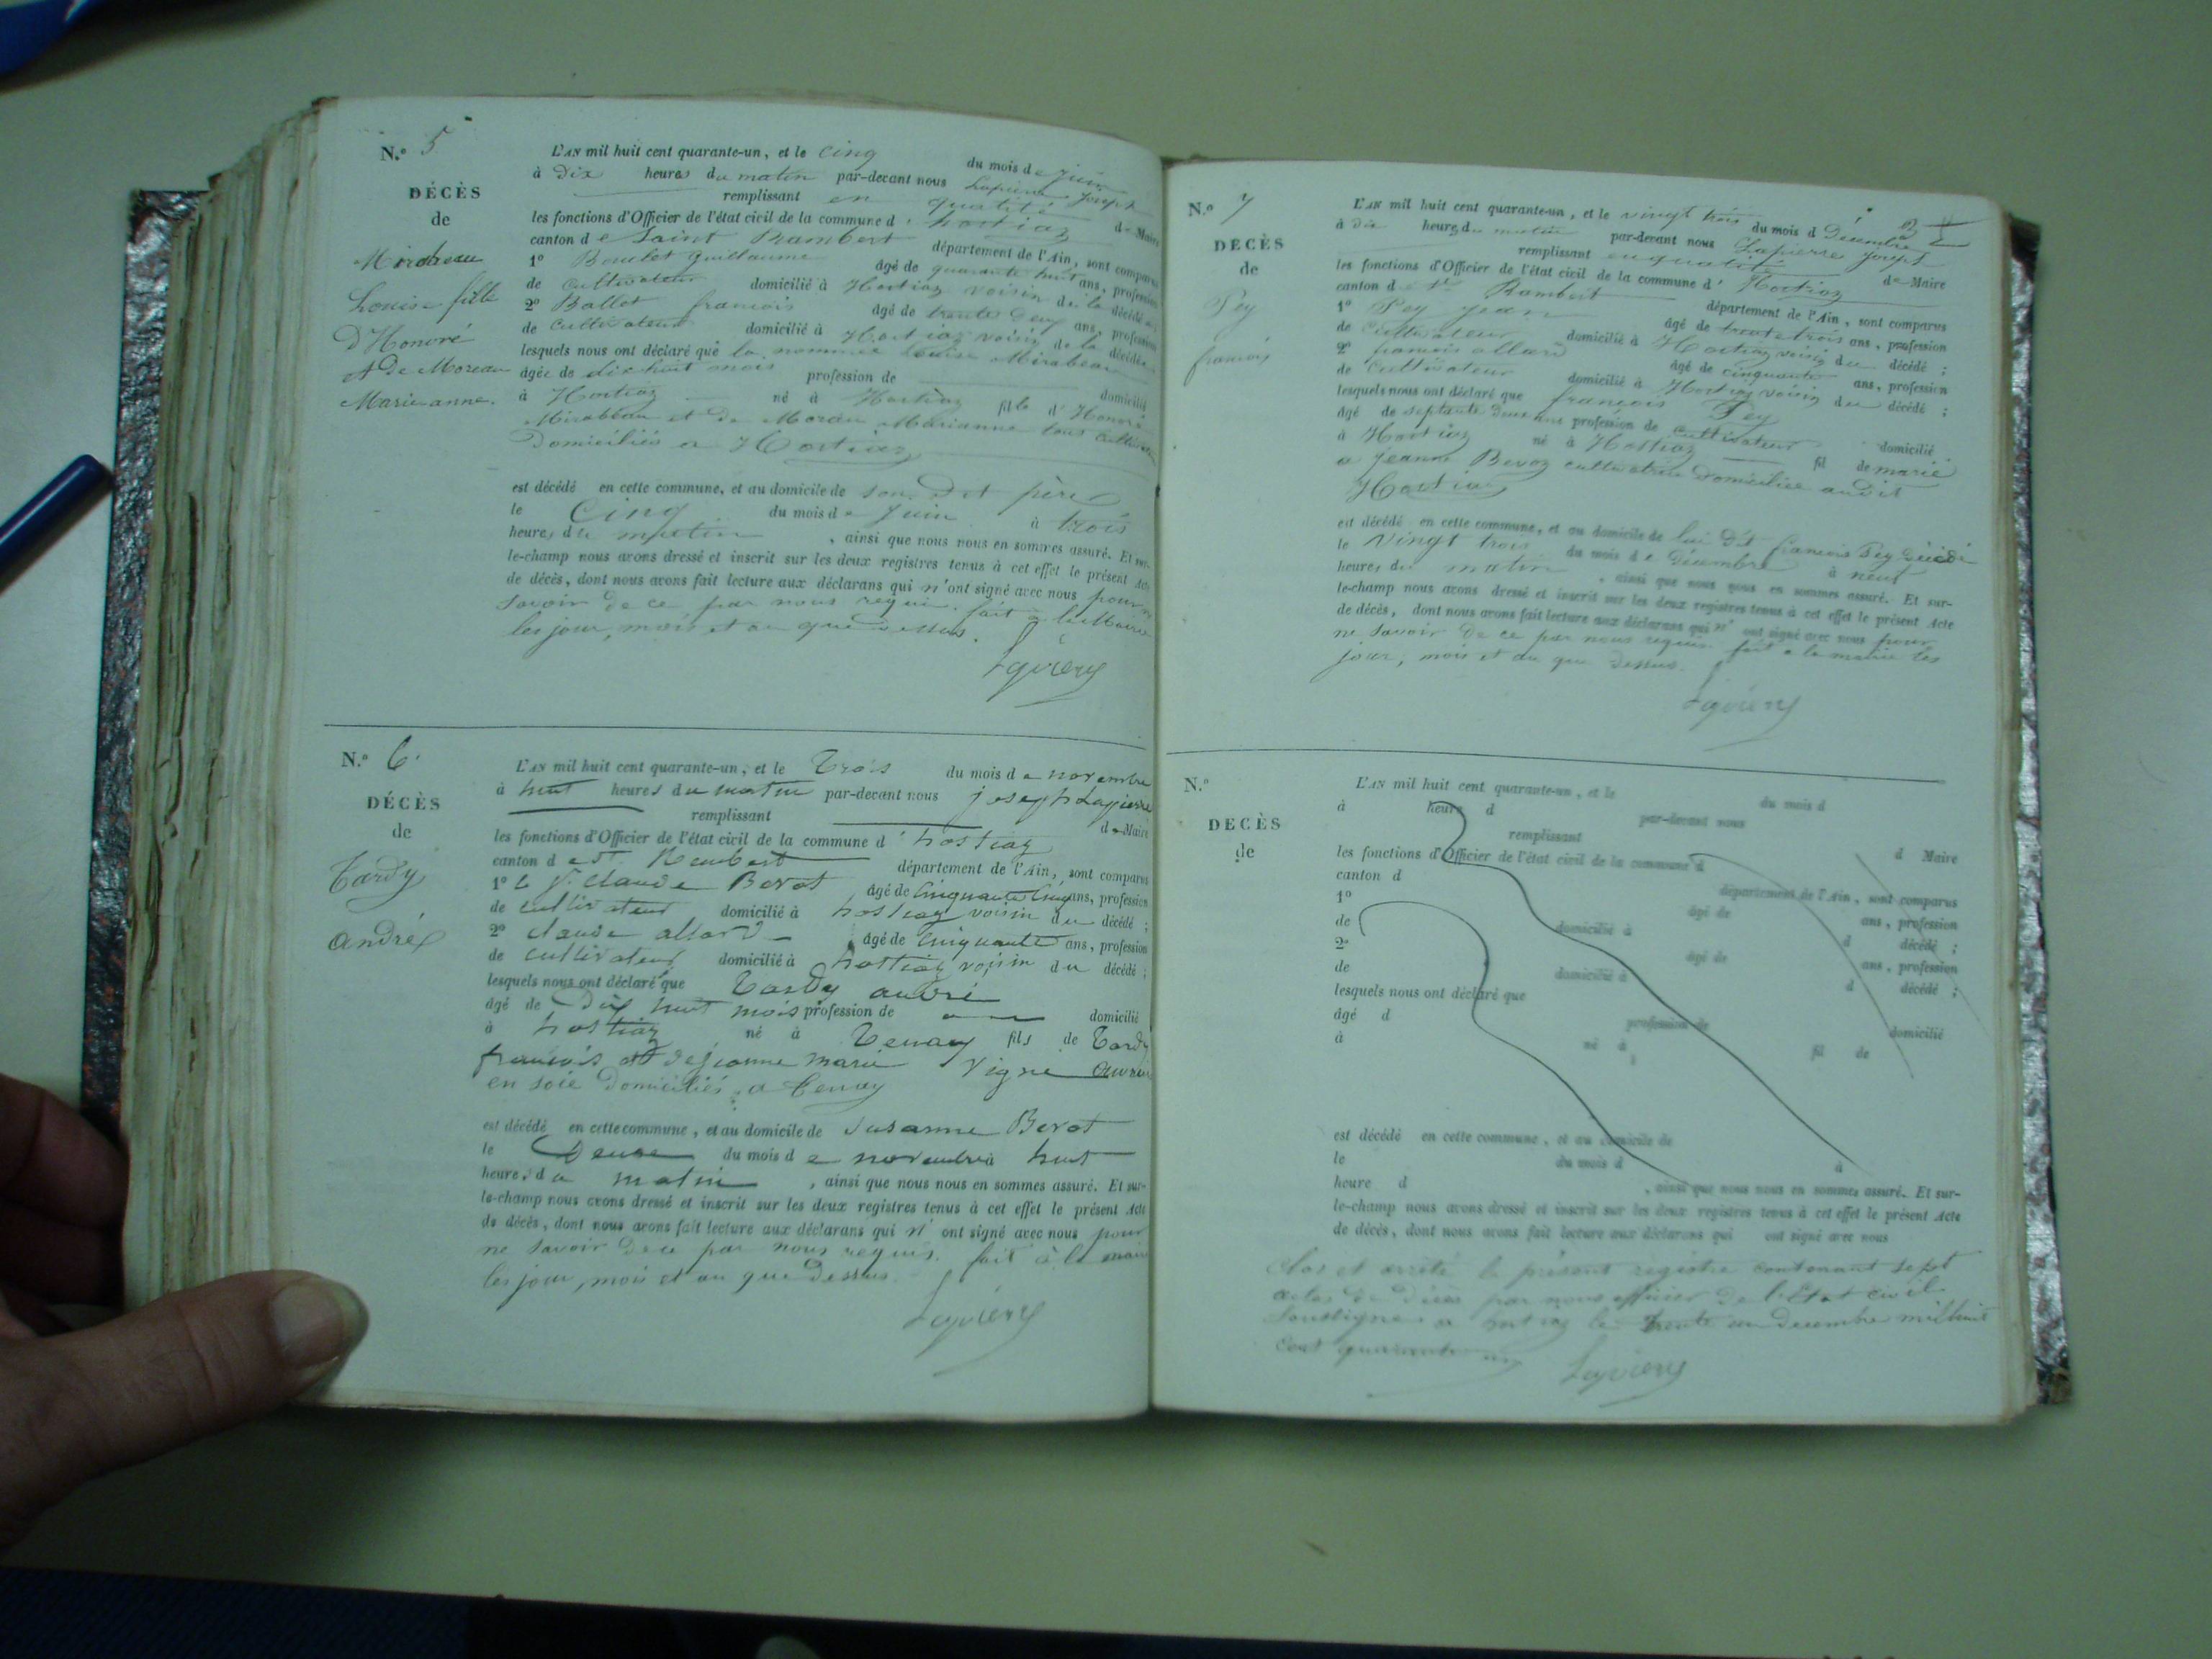 N.º 5
DÉCÈS
de
Mirabeau
Louise fille
d'Honoré
et de Moreau
Marie anne.
L'AN mil huit cent quarante-un, et le cinq du mois de juin
à dix heures du matin par-devant nous Lapierre Joseph
remplissant en qualité de Maire
les fonctions d'Officier de l'état civil de la commune d'hostiaz
canton de Saint Rambert département de l'Ain, sont comparus
1º Boulet guillaume âgé de quarante huit ans, profession
de cultivateur domicilié à Hostiaz voisin de la décédée
2º Ballet francois âgé de trente deux ans, profession
de cultivateur domicilié à Hostiaz voisin de la décédée
lesquels nous ont déclaré que la nommée Louise Mirabeau
âgée de dix huit mois profession de domicilié
à Hostiaz né à Hostiaz fille d'Honoré
Mirabeau et de Moreau Marianne tous cultivateurs
domiciliés a Hostiaz
est décédé en cette commune, et au domicile de son dit père
le cinq du mois de juin à trois
heures du matin, ainsi que nous nous en sommes assuré. Et sur-
le-champ nous avons dressé et inscrit sur les deux registres tenus à cet effet le présent Acte
de décès, dont nous avons fait lecture aux déclarans qui n'ont signé avec nous pour ne
savoir de ce par nous requis. fait a la Mairie
les jour, mois et an que dessus.
Lapierre
N.º 6
DÉCÈS
de
Tardy
André
L'AN mil huit cent quarante-un, et le trois du mois de novembre
à huit heures du matin par-devant nous joseph Lapierre
remplissant de Maire
les fonctions d'Officier de l'état civil de la commune d'hostiaz
canton de St. Rambert département de l'Ain, sont comparus
1º le Sr. claude Berot âgé de cinquante cinq ans, profession
de cultivateur domicilié à hostiaz voisin du décédé ;
2º claude allard âgé de cinquante ans, profession
de cultivateur domicilié à hostiaz voisin du décédé ;
lesquels nous ont déclaré que Tardy andré
âgé de dix huit mois profession de domicilié
à hostiaz né à Tenay fils de Tardy
francois et de jeanne marie Vigne ouvriers
en soie domiciliés a Tenay
est décédé en cette commune, et au domicile de Susanne Berot
le deux du mois de novembre à huit
heures du matin, ainsi que nous nous en sommes assuré. Et sur-
le-champ nous avons dressé et inscrit sur les deux registres tenus à cet effet le présent Acte
de décès, dont nous avons fait lecture aux déclarans qui n'ont signé avec nous pour
ne savoir de ce par nous requis. fait à la mairie
les jour, mois et an que dessus.
Lapierre
N.º 7
DECÈS
de
Pey
francois
L'AN mil huit cent quarante-un, et le vingt trois du mois d Décembre
à dix heures du matin par-devant nous Lapierre joseph
remplissant en qualité de Maire
les fonctions d'Officier de l'état civil de la commune d'Hostiaz
canton de St. Rambert département de l'Ain, sont comparus
1º Pey jean âgé de trente trois ans, profession
de cultivateur domicilié à Hostiaz voisin du décédé ;
2º francois allard âgé de cinquante ans, profession
de cultivateur domicilié à Hostiaz voisin du décédé ;
lesquels nous ont déclaré que françois Pey
âgé de septante deux ans profession de cultivateur domicilié
à Hostiaz né à Hostiaz fil de marié
a jeanne Bevoz cultivatrice domiciliée audit
Hostiaz
est décédé en cette commune, et au domicile de lui dit francois Pey décédé
le vingt trois du mois de Décembre à neuf
heures du matin, ainsi que nous nous en sommes assuré. Et sur-
le-champ nous avons dressé et inscrit sur les deux registres tenus à cet effet le présent Acte
de décès, dont nous avons fait lecture aux déclarans qui n'ont signé avec nous pour
ne savoir de ce par nous requis. fait a la mairie les
jour, mois et an que dessus.
Lapierre
N.º
DECÈS
de
L'AN mil huit cent quarante-un, et le du mois d
à heure d par-devant nous
remplissant d Maire
les fonctions d'Officier de l'état civil de la commune d
canton d département de l'Ain, sont comparus
1º âgé de ans, profession
de domicilié à d décédé ;
2º âgé de ans, profession
de domicilié à d décédé ;
lesquels nous ont déclaré que
âgé d profession de domicilié
à né à fil de
est décédé en cette commune, et au domicile de
le du mois d à
heure d , ainsi que nous nous en sommes assuré. Et sur-
le-champ nous avons dressé et inscrit sur les deux registres tenus à cet effet le présent Acte
de décès, dont nous avons fait lecture aux déclarans qui ont signé avec nous
Clos et arrêté le présent registre contenant sept
actes de décès par nous officier de l'Etat civil
Soussigné a hostiaz le trente un Decembre mil huit
cent quarante un
Lapierre